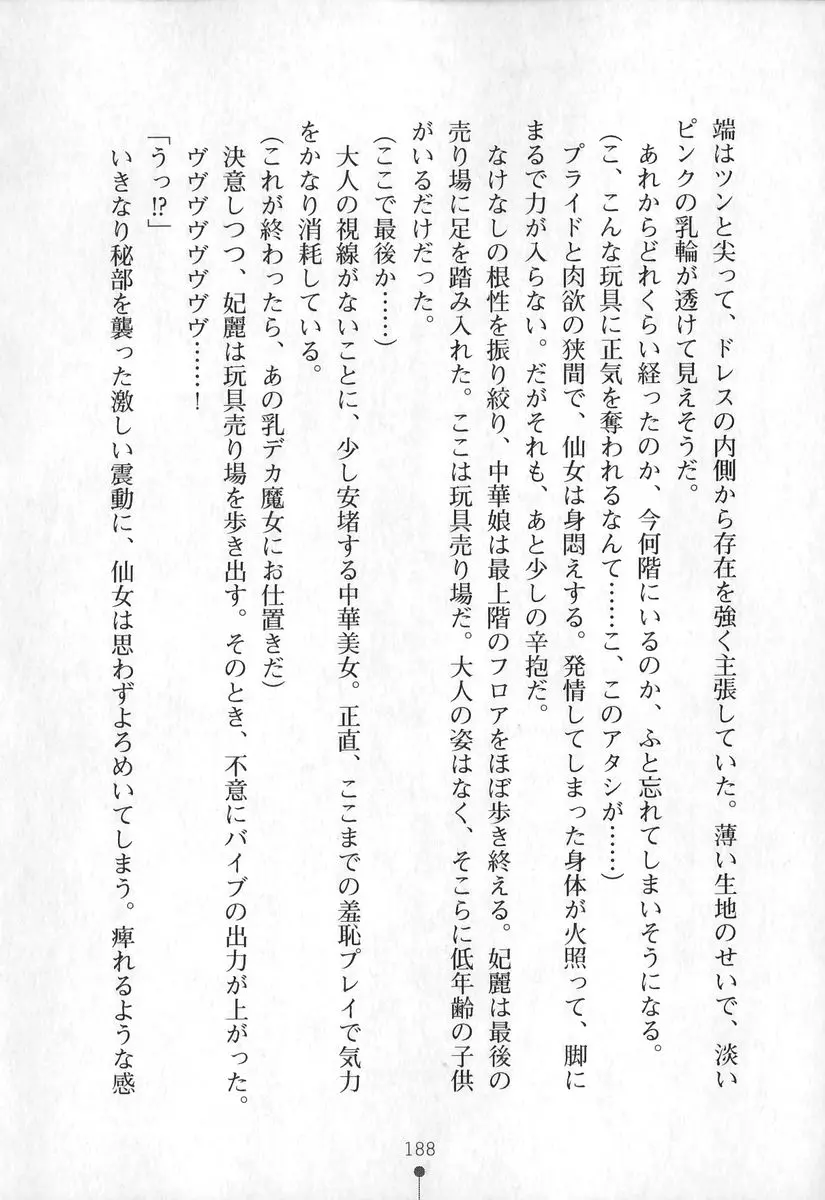 端はツンと尖って、ドレスの内側から存在を強く主張していた。薄い生地のせいで、淡い
ピンクの乳輪が透けて見えそうだ。
あれからどれくらい経ったのか、今何階にいるのか、ふと忘れてしまいそうになる。
(こ、こんな玩具に正気を奪われるなんて……こ、このアタシが……)
プライドと肉欲の狭間で、仙女は身悶えする。発情してしまった身体が火照って、脚に
まるで力が入らない。だがそれも、あと少しの辛抱だ。
なけなしの根性を振り絞り、中華娘は最上階のフロアをほぼ歩き終える。妃麗は最後の
売り場に足を踏み入れた。ここは玩具売り場だ。大人の姿はなく、そこらに低年齢の子供
がいるだけだった。
(ここで最後か……)
大人の視線がないことに、少し安堵する中華美女。正直、ここまでの羞恥プレイで気力
をかなり消耗している。
(これが終わったら、あの乳デカ魔女にお仕置きだ)
決意しつつ、妃麗は玩具売り場を歩き出す。そのとき、不意にバイブの出力が上がった。
ヴヴヴヴヴヴヴヴ……!
「うっ!?」
いきなり秘部を襲った激しい震動に、仙女は思わずよろめいてしまう。痺れるような感
188